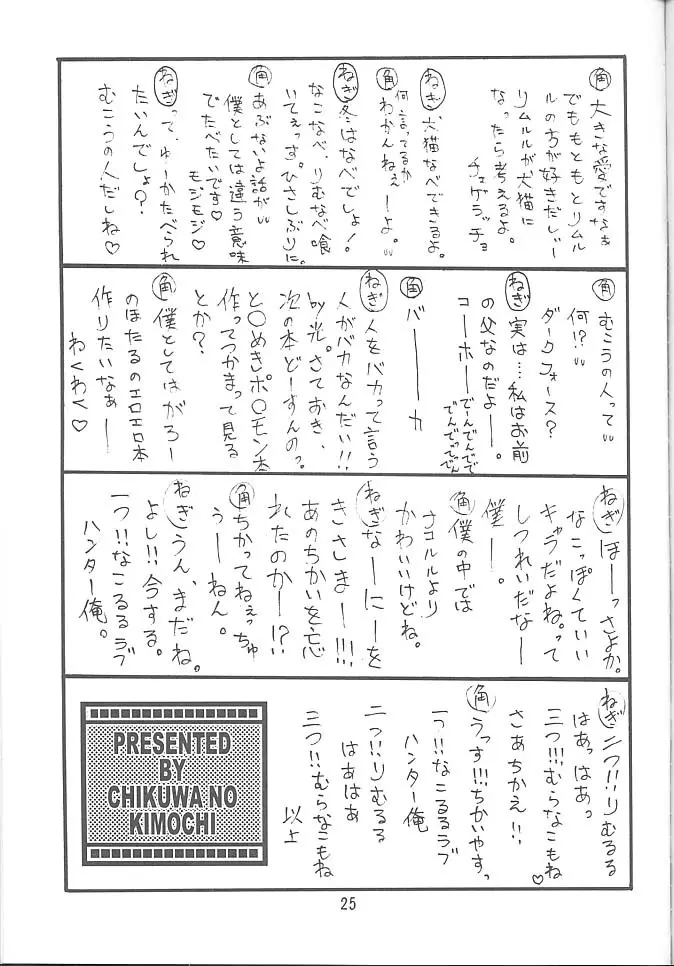 角 大きな愛ですなぁ
でももともとリムル
ルの方が好きだしぃー
リムルルが犬猫に
なったら考えるよ。
チェゲラッチョ
ねぎ 犬猫なべできるよ。
角 何言ってるか
わかんねぇーーよ。
ねぎ 冬はなべでしょ!
なこなべ、りむなべ喰
いてぇっす。ひさしぶりに。
角 あぶないよ話が
僕としては違う意味
でたべたいです♡
モジモジ♡
ねぎ って、ゆーかたべられ
たいんでしょ?
むこうの人だしね♡
角 むこうの人って
何!?
ダークフォース?
ねぎ 実は…私はお前
の父なのだよー。
コーホー
でーんでんでんで
でんでっでん
角 バーーーカ
ねぎ 人をバカって言う
人がバカなんだい!!
by光。さておき、
次の本どーすんの?
と〇めきポ〇モン本
作ってつかまって見る
とか?
角 僕としてはがろー
のほたるのエロエロ本
作りたいなぁーー
わくわく♡
ねぎ ほーっさよか。
なこっぽくていい
キャラだよね。って
しつれいだなー
僕ー。
角 僕の中では
ナコルルより
かわいいけどね。
ねぎ なーーにーを
きさしまーー!!!
あのちかいを忘
れたのかーー!?
角 ちかってねぇっちゅ
うーねん。
ねぎ うん、まだね。
よし!!今する。
一つ!!なこるるラブ
ハンター俺。
ねぎ 二つ!!りむるる
はあっはあっ
三つ!!!むらなこもね♡
さあちかえ!!
角 うっす!!!ちかいやすっ
一っ!!なこるるラブ
ハンター俺
二っ!!りむるる
はあはあ
三つ!!むらなこもね
以上
PRESENTED
BY
CHIKUWA NO
KIMOCHI
25